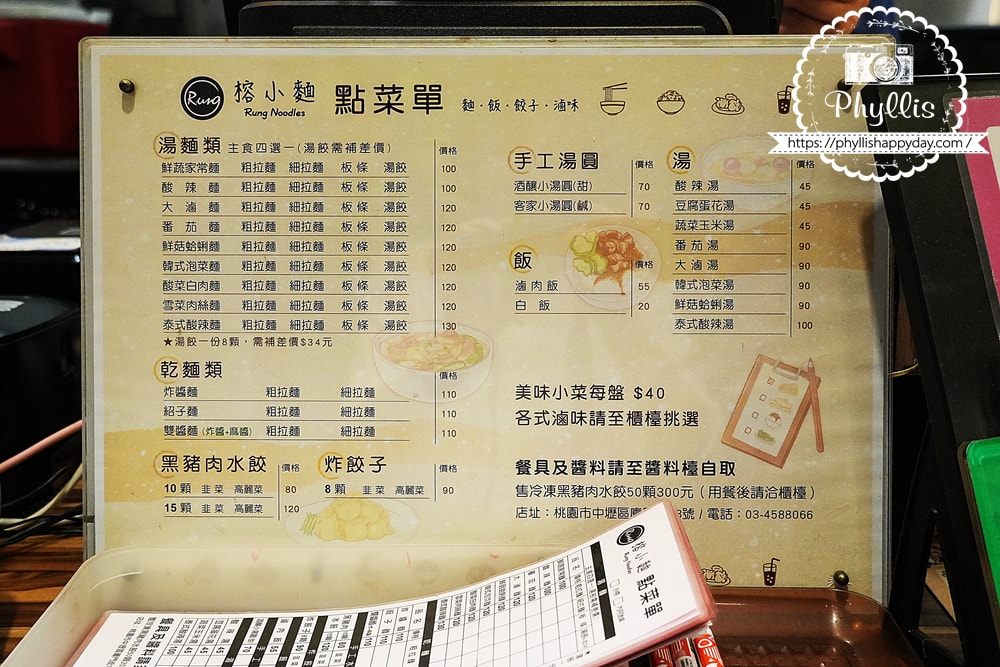 Phyllis
https://phyllishappyday.com/
Rung 榕小麵 Rung Noodles 點菜單 麵·飯·餃子·滷味
湯麵類 主食四選一(湯餃需補差價) 價格
鮮蔬家常麵 粗拉麵 細拉麵 板條 湯餃 100
酸辣麵 粗拉麵 細拉麵 板條 湯餃 100
大滷麵 粗拉麵 細拉麵 板條 湯餃 120
番茄麵 粗拉麵 細拉麵 板條 湯餃 120
鮮菇蛤蜊麵 粗拉麵 細拉麵 板條 湯餃 120
韓式泡菜麵 粗拉麵 細拉麵 板條 湯餃 120
酸菜白肉麵 粗拉麵 細拉麵 板條 湯餃 120
雪菜肉絲麵 粗拉麵 細拉麵 板條 湯餃 120
泰式酸辣麵 粗拉麵 細拉麵 板條 湯餃 130
★湯餃一份8顆,需補差價$34元
乾麵類 價格
炸醬麵 粗拉麵 細拉麵 110
紹子麵 粗拉麵 細拉麵 110
雙醬麵(炸醬+麻醬) 粗拉麵 細拉麵 110
黑豬肉水餃 價格
10顆 韭菜 高麗菜 80
15顆 韭菜 高麗菜 120
炸餃子 價格
8顆 韭菜 高麗菜 90
手工湯圓 價格
酒釀小湯圓(甜) 70
客家小湯圓(鹹) 70
飯 價格
滷肉飯 55
白飯 20
湯 價格
酸辣湯 45
豆腐蛋花湯 45
蔬菜玉米湯 45
番茄湯 90
大滷湯 90
韓式泡菜湯 90
鮮菇蛤蜊湯 90
泰式酸辣湯 100
美味小菜每盤 $40
各式滷味請至櫃檯挑選
餐具及醬料請至醬料檯自取
售冷凍黑豬肉水餃50顆300元(用餐後請洽櫃檯)
店址:桃園市中壢區 號 / 電話:03-4588066
Rung 榕小麵 Rung Noodles 點菜單